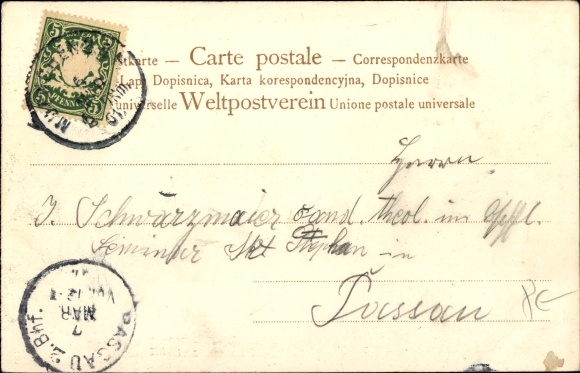 5
5 PFENNIG 5
tkarte — Carte postale — Correspondenzkarte
Lap, Dopisnica, Karta korespondencyjna, Dopisnice
universelle Weltpostverein Unione postale universale
Herrn
J. Schwarzmaier Cand. theol. im
Seminar St. Stephan in
Passau
PASSAU Bhf.
7
MAR